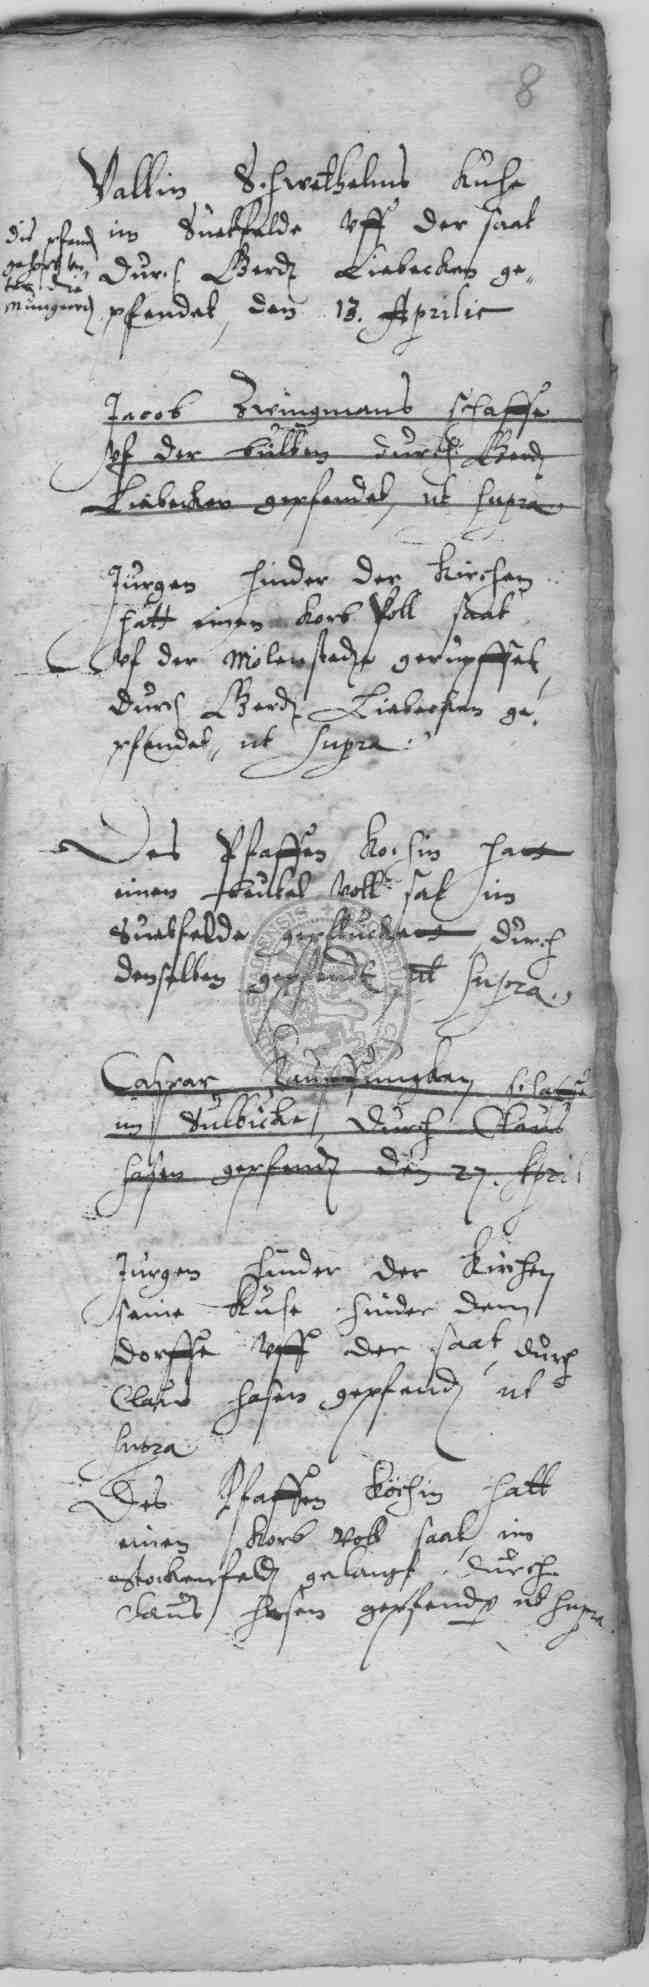 8
Valtin Schwethelms Kuhe
im Suetfelde vff der saat
durch Gerdt Liebecken ge-
pfendet, den 13. Aprilis
dis pfend
gehort vn
ter die
Jacob Zwingmans schaffe
vf der bulten durch Gerdt
Liebecken gepfendet, ut supra
Jurgen hinder der Kirchen
hatt einen Korb voll saat
vf der Molenstede gerupffet,
durch Gerdt Liebecken ge-
pfendet, ut supra.
Des Pfaffen Kochin hatt
einen beutel voll sat im
Suetfelde gepflucket durch
denselben gepfendt ut supra.
Caspar schaffe
im Sulbicke, durch Claus
hasen gepfendt den 27. April
Jurgen hinder der Kirchen
seine Kuhe hinder dem
dorffe vff der saat, durch
Claus hasen gepfendt ut
supra
Des Pfaffen Köchin hatt
einen Korb voll saat, im
Stockenfeld gelangt, durch
Claus hasen gepfendt ut supra